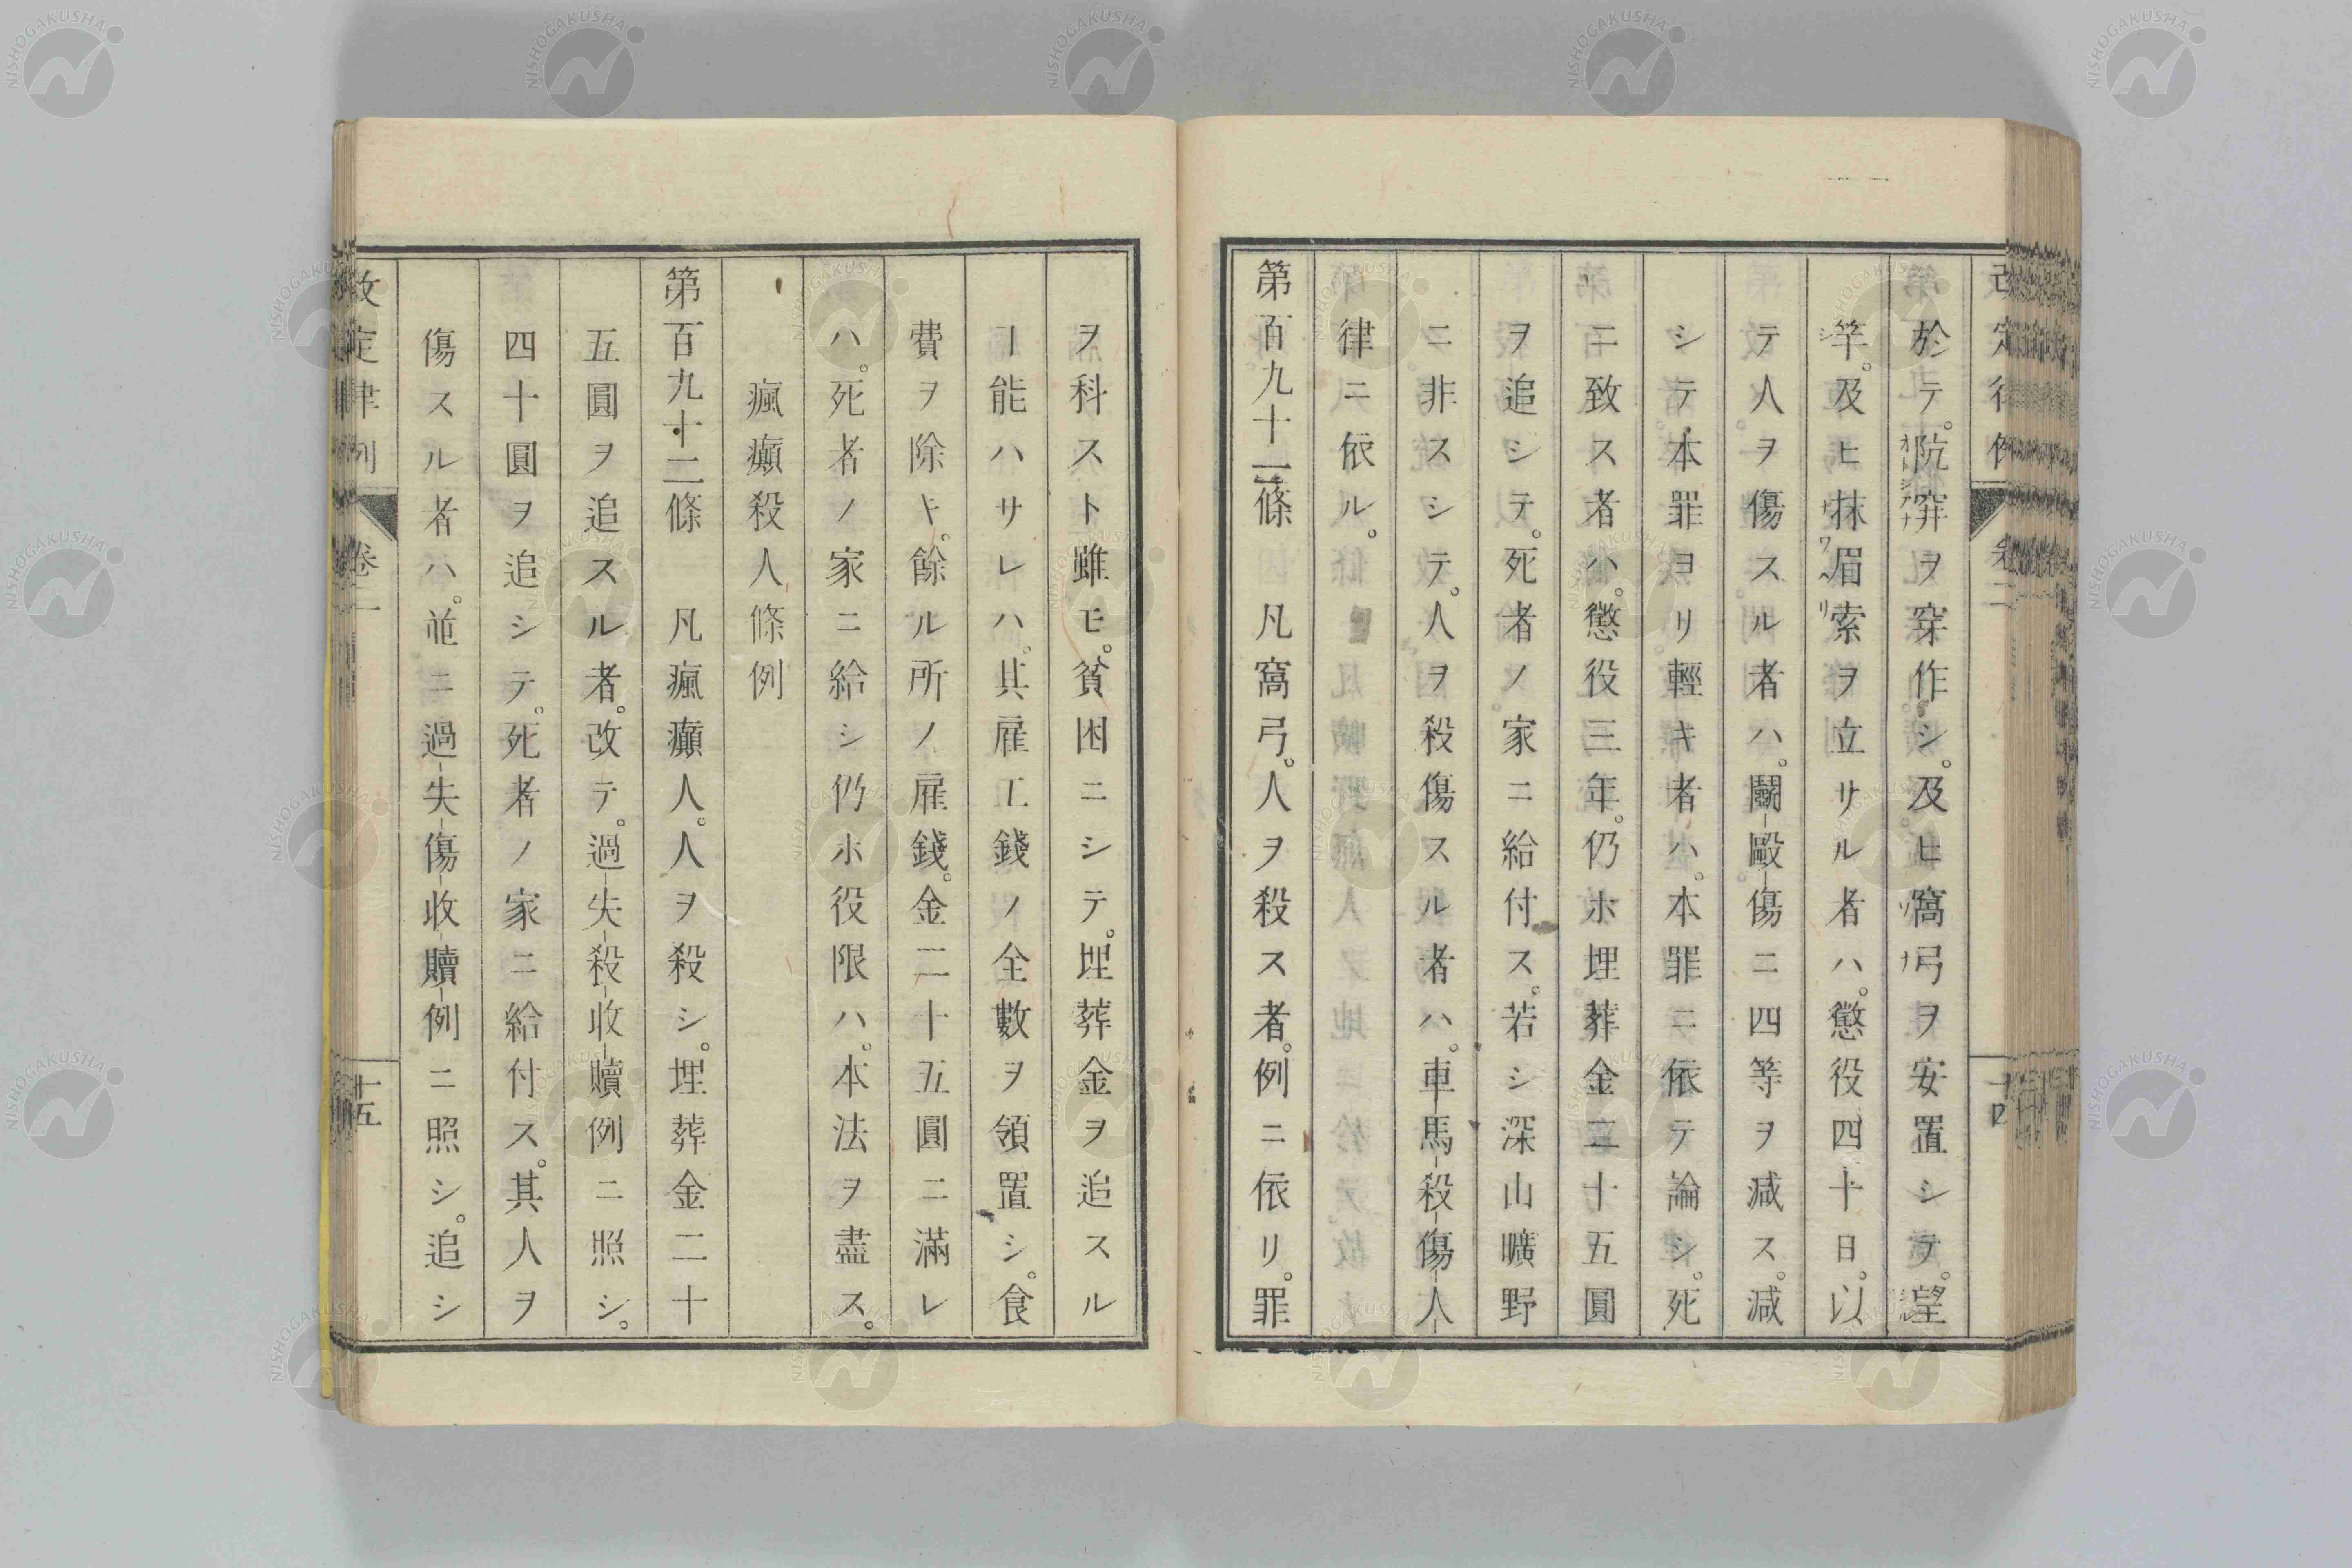 改定律例 卷二 十四
於テ。阬穽ヲ穿作シ。及ヒ窩弓ヲ安置シテ。望
竿。及ヒ抹眉索ヲ立サル者ハ。懲役四十日。以
テ人ヲ傷スル者ハ。鬭毆傷ニ四等ヲ減ス。減
シテ本罪ヨリ輕キ者ハ。本罪ニ依テ論シ。死
ニ致ス者ハ。懲役三年。仍ホ埋葬金二十五圓
ヲ追シテ。死者ノ家ニ給付ス。若シ深山曠野
ニ非スシテ。人ヲ殺傷スル者ハ。車馬殺傷人
律ニ依ル。
第百九十一條 凡窩弓。人ヲ殺ス者。例ニ依リ。罪
ヲ科スト雖モ。貧困ニシテ。埋葬金ヲ追スル
ヿ能ハサレハ。其雇工錢ノ全數ヲ領置シ。食
費ヲ除キ。餘ル所ノ雇錢。金二十五圓ニ滿レ
ハ。死者ノ家ニ給シ仍ホ役限ハ。本法ヲ盡ス。
瘋癲殺人條例
第百九十二條 凡瘋癲人。人ヲ殺シ。埋葬金二十
五圓ヲ追スル者。改テ。過失殺收贖例ニ照シ。
四十圓ヲ追シテ。死者ノ家ニ給付ス。其人ヲ
傷スル者ハ。並ニ過失傷收贖例ニ照シ。追シ
改定律例 卷二 十五
NISHOGAKUSHA